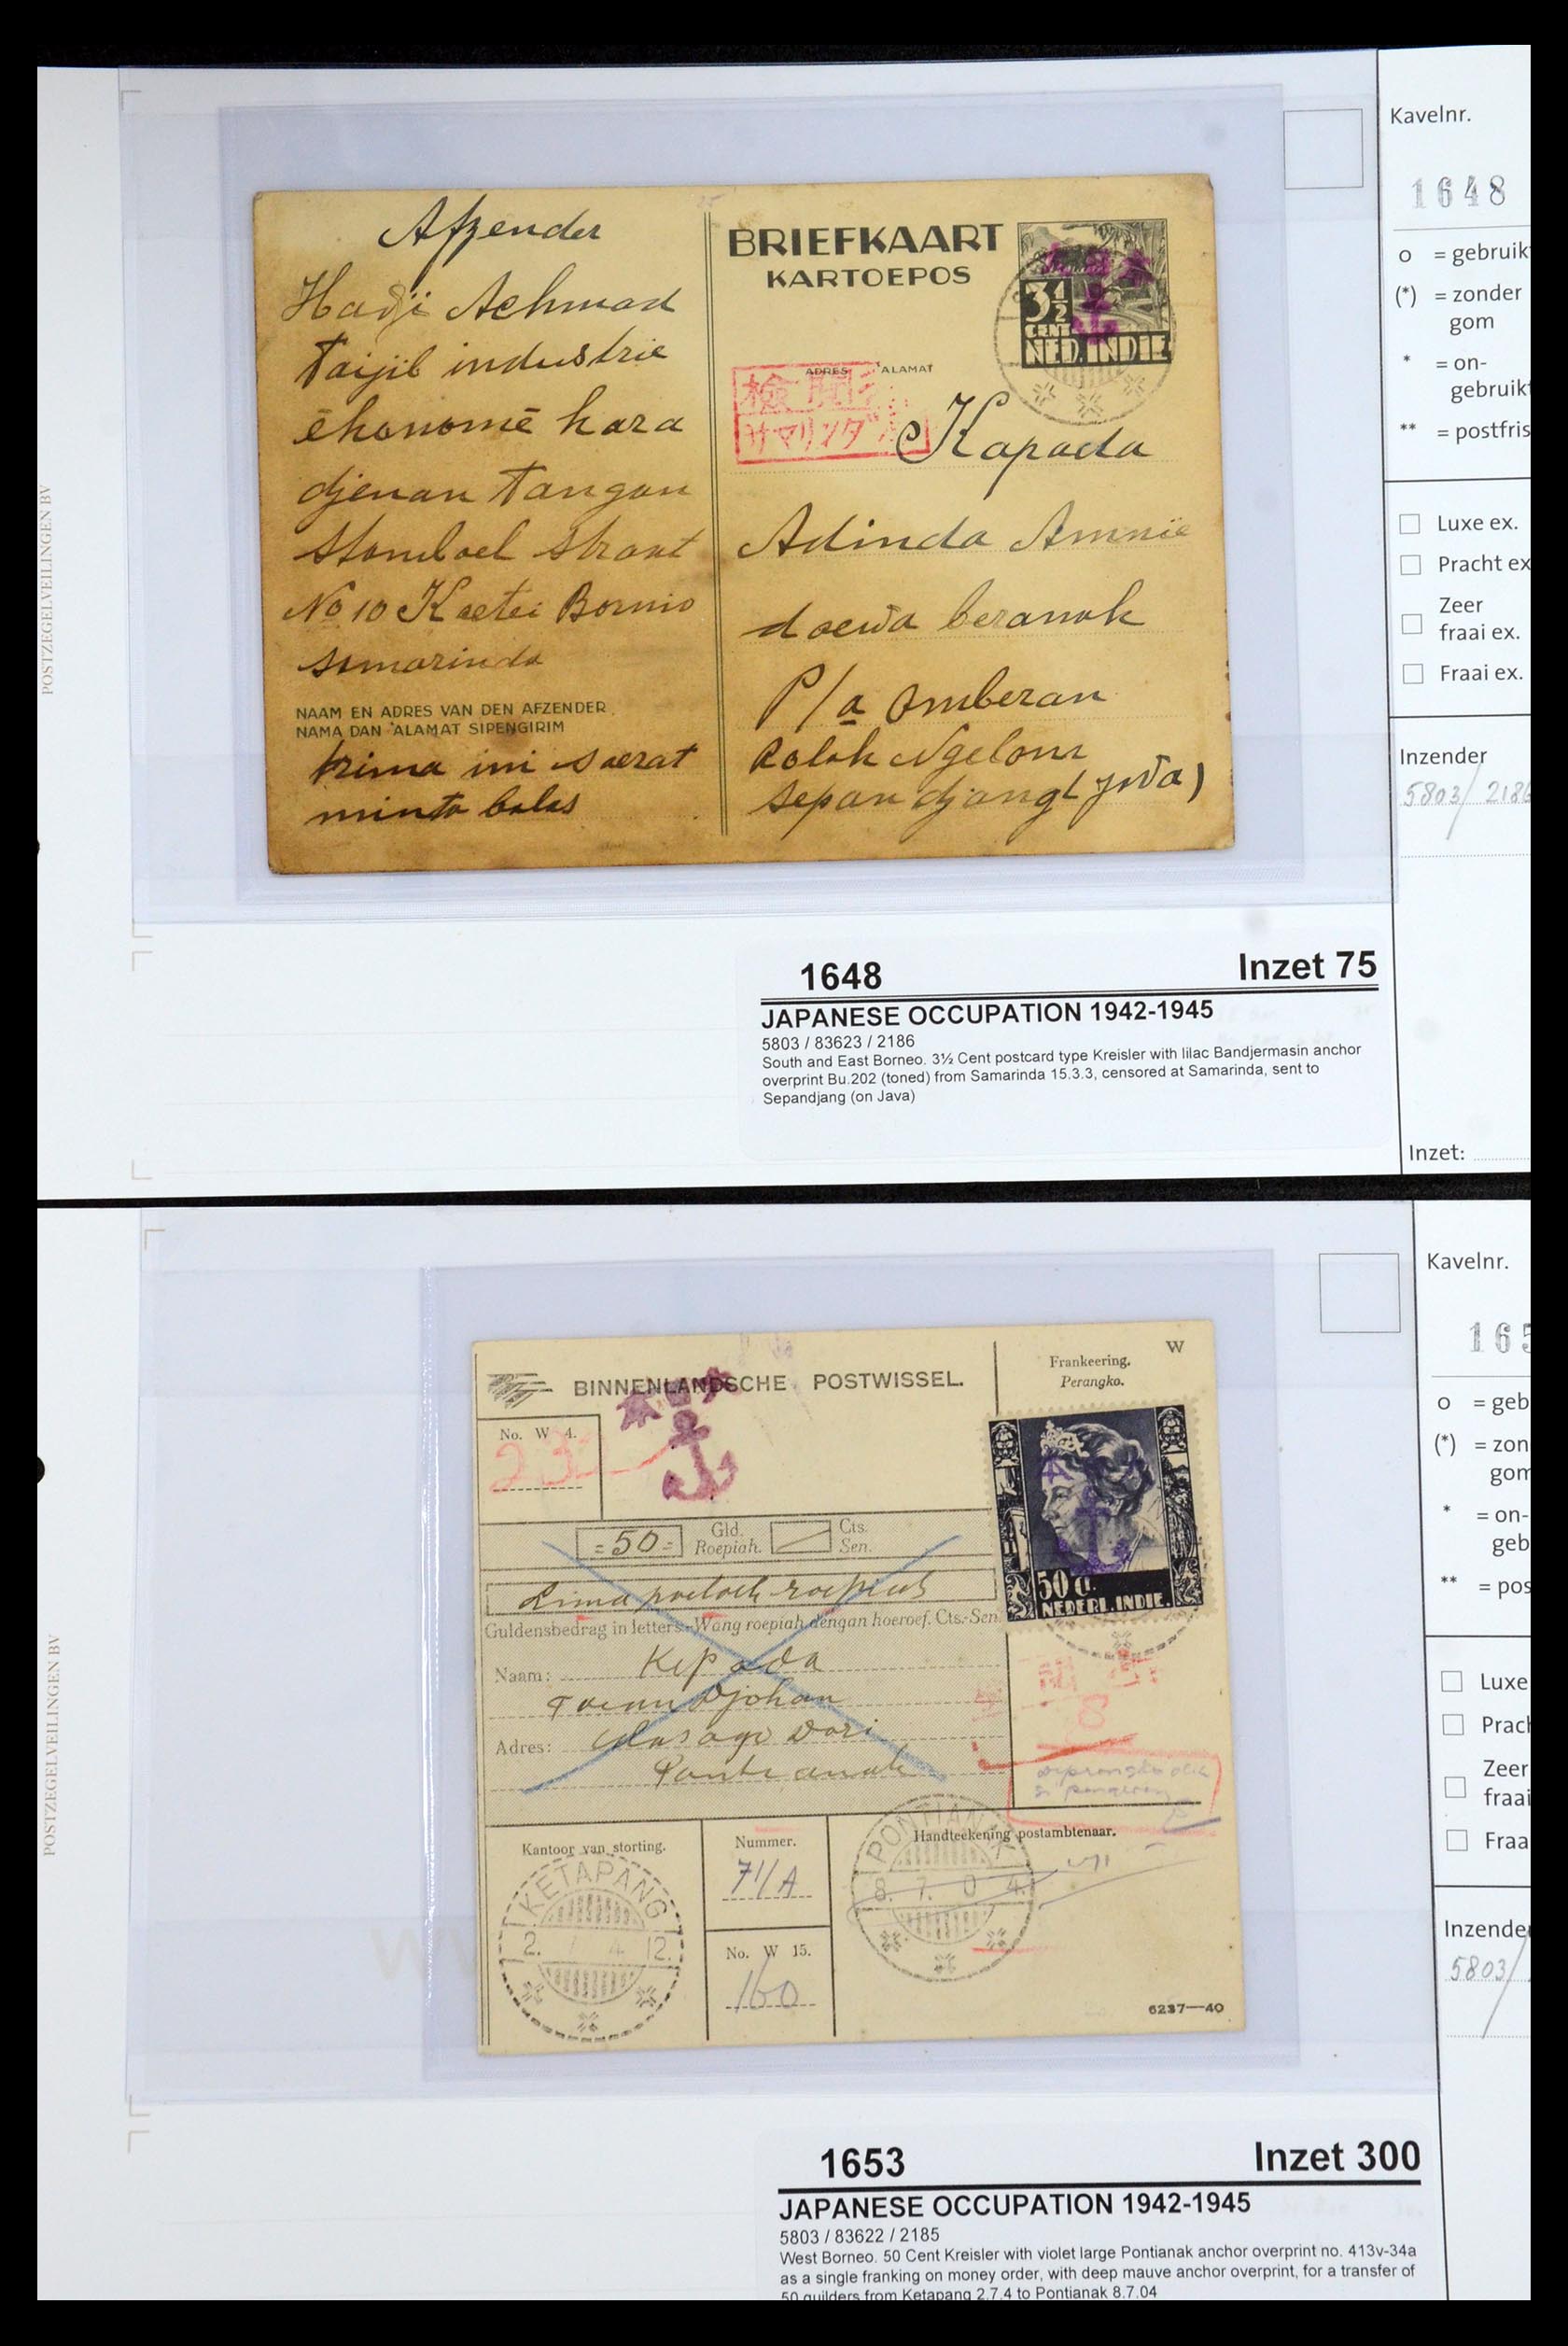 Afzender
Hadji Achmad
Taijib industrie
ēkonomē kara
djenan Tangan
Stamboel Straat
No 10 Koetei Borneo
Samarinda
NAAM EN ADRES VAN DEN AFZENDER
NAMA DAN ALAMAT SIPENGIRIM
trima ini soerat
minta balas
BRIEFKAART
KARTOEPOS
3½
CENT
NED. INDIE
ADRES ALAMAT
検閲
サマリンダ
Kapada
Adinda Amnië
doewa beranak
P/a Omberan
Rolak Ngelom
Sepandjang (Java)
POSTZEGELVEILINGEN BV
Kavelnr.
1648
o = gebruik
(*) = zonder
gom
* = on-
gebruikt
** = postfris
Luxe ex.
Pracht ex
Zeer
fraai ex.
Fraai ex.
Inzender
5803/ 2186
Inzet:
1648 Inzet 75
JAPANESE OCCUPATION 1942-1945
5803 / 83623 / 2186
South and East Borneo. 3½ Cent postcard type Kreisler with lilac Bandjermasin anchor
overprint Bu.202 (toned) from Samarinda 15.3.3, censored at Samarinda, sent to
Sepandjang (on Java)
W
BINNENLANDSCHE POSTWISSEL.
Frankeering.
Perangko.
No. W 4.
23
=50= Gld. Cts.
Roepiah. Sen.
Lima poeloeh roepiah
Guldensbedrag in letters.-Wang roepiah dengan hoeroef. Cts.-Sen.
50 ct.
NEDERL. INDIE.
Naam: Kepada
Toean Djohan
Adres: Masago Dori
Pontianak
Kantoor van storting.
KETAPANG
2. 7 4 12.
Nummer.
71/A
No. W 15.
160
Handteekening postambtenaar.
PONTIANAK
8. 7. 0 4.
6237—40
POSTZEGELVEILINGEN BV
Kavelnr.
165
o = geb
(*) = zon
gom
* = on-
geb
** = pos
Luxe
Prach
Zeer
fraai
Fraa
Inzender
5803/
1653 Inzet 300
JAPANESE OCCUPATION 1942-1945
5803 / 83622 / 2185
West Borneo. 50 Cent Kreisler with violet large Pontianak anchor overprint no. 413v-34a
as a single franking on money order, with deep mauve anchor overprint, for a transfer of
50 guilders from Ketapang 2.7.4 to Pontianak 8.7.04